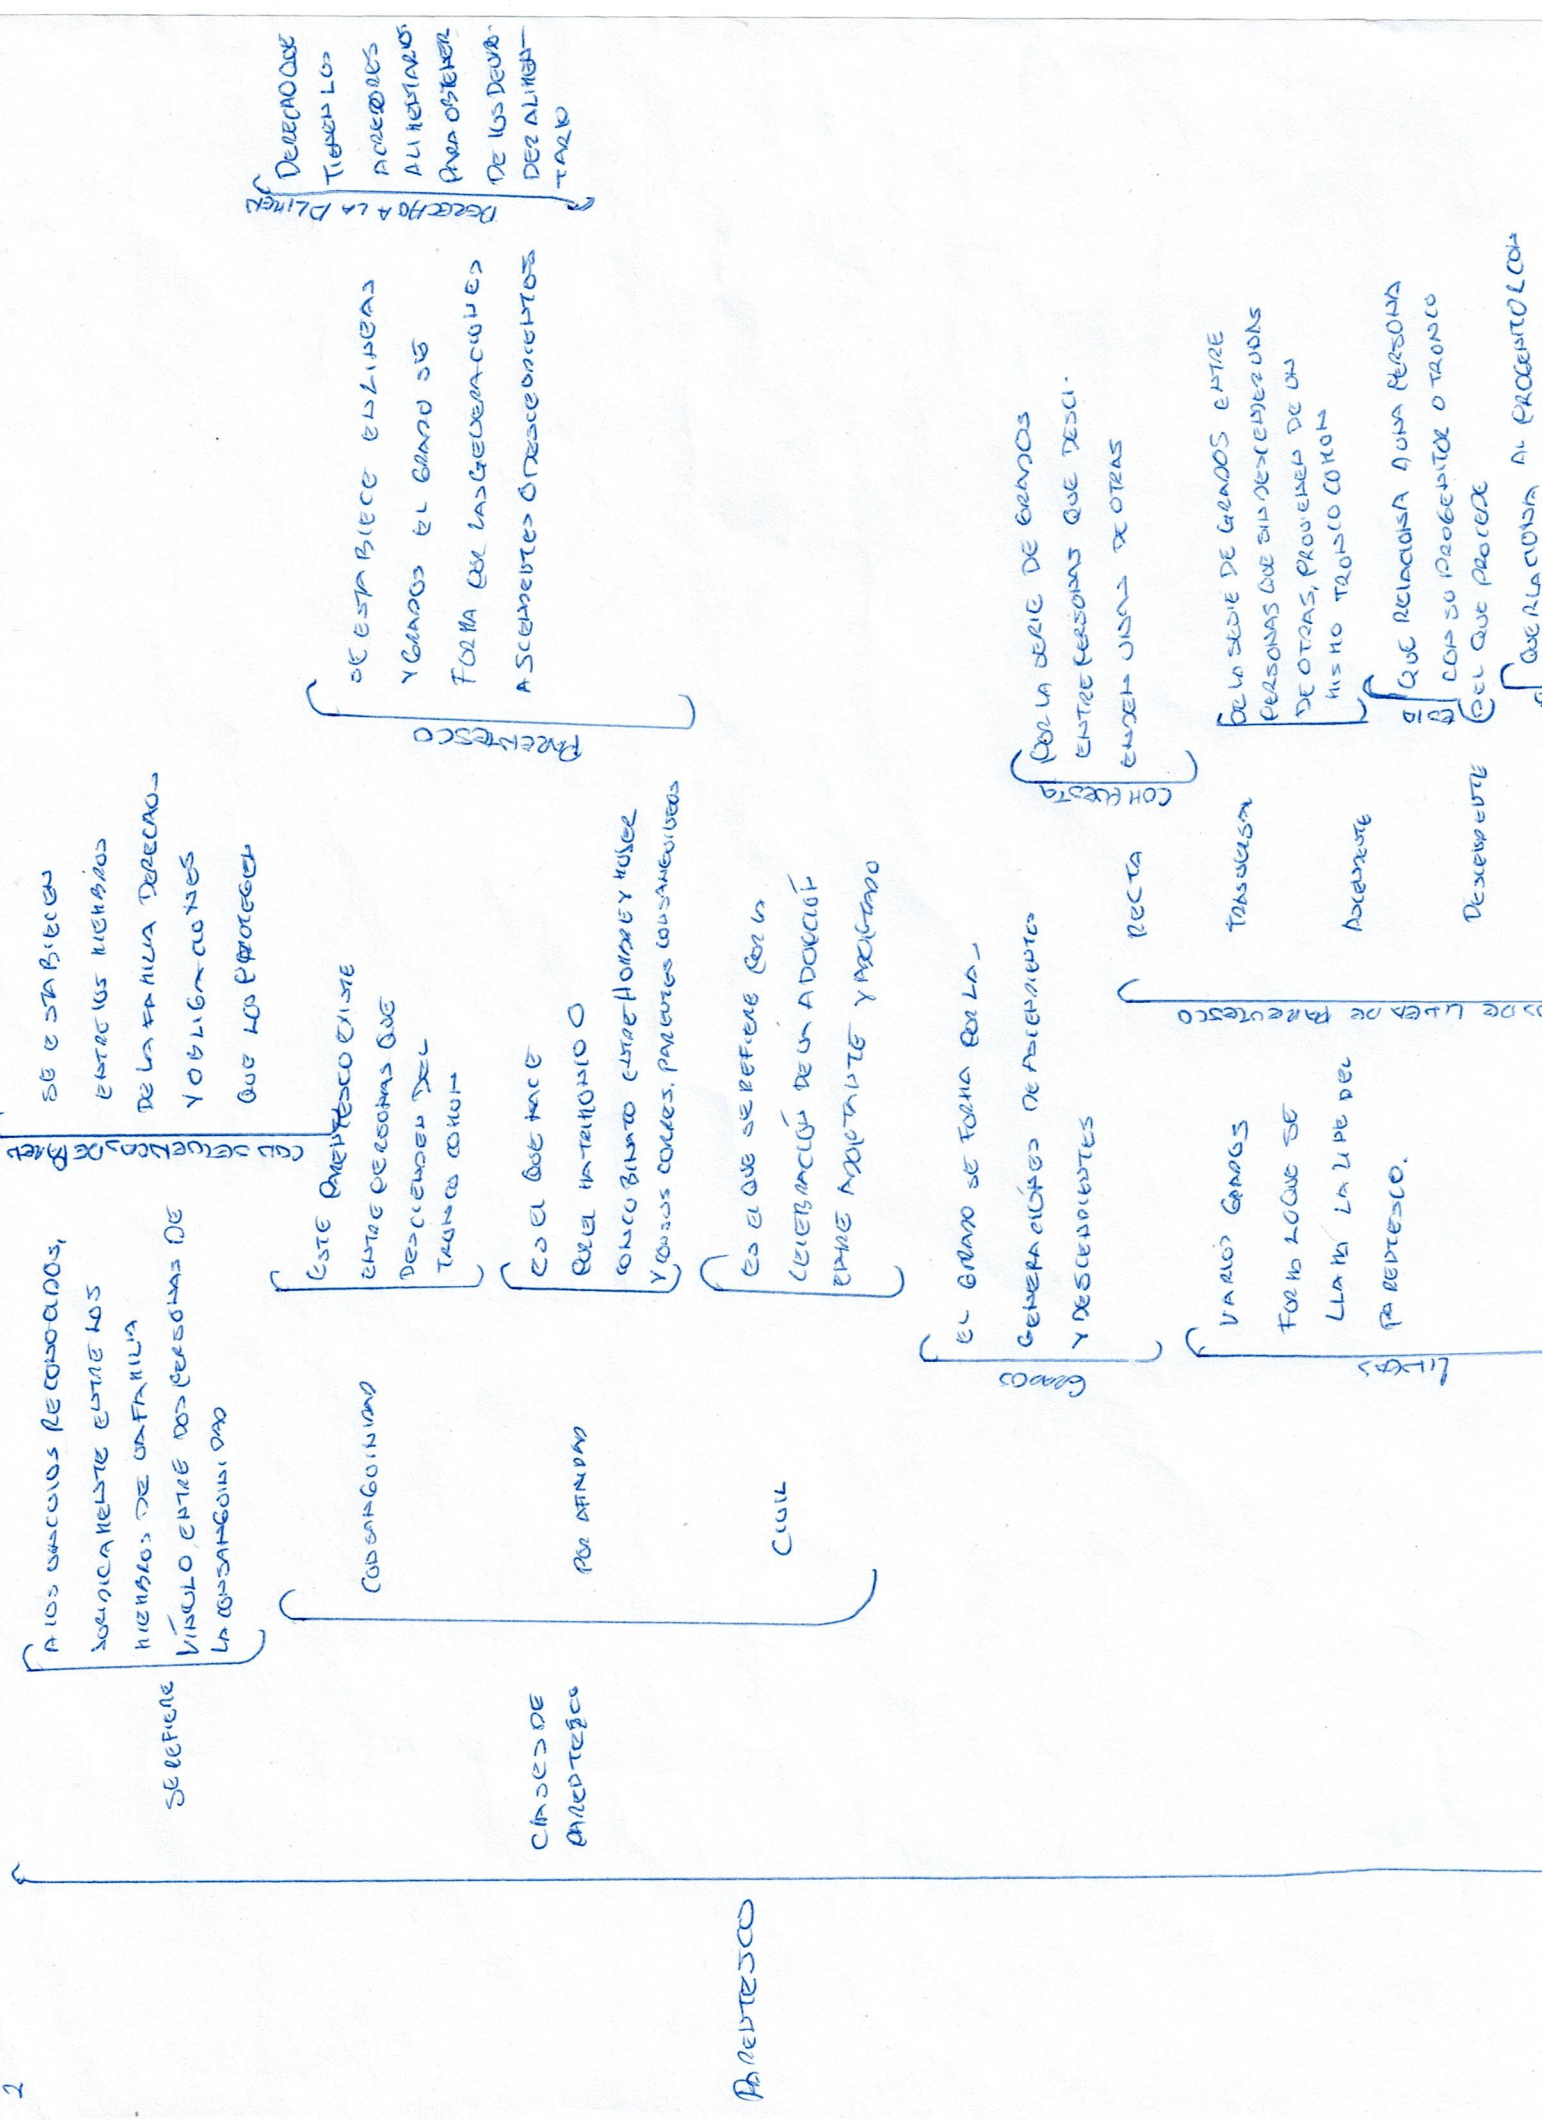 2
PARENTESCO
SE REFIERE
A LOS VINCULOS RECONOCIDOS,
JURIDICAMENTE ENTRE LOS
MIEMBROS DE UNA FAMILIA
VÍNCULO, ENTRE DOS PERSONAS DE
LA CONSANGUINIDAD
CONSECUENCIAS DE
SE ESTABLECEN
ENTRE LOS MIEMBROS
DE LA FAMILIA DERECHOS
Y OBLIGACIONES
QUE LOS PROTEGEN
CLASES DE
PARENTESCO
CONSANGUINIDAD
ESTE PARENTESCO EXISTE
ENTRE PERSONAS QUE
DESCIENDEN DEL
TRONCO COMUN
POR AFINIDAD
ES EL QUE NACE
POR EL MATRIMONIO O
CONCUBINATO ENTRE HOMBRE Y MUJER
Y SUS CORRES. PARENTES CONSANGUINEOS
CIVIL
ES EL QUE SE REFIERE POR LA
CELEBRACIÓN DE LA ADOPCIÓN
ENTRE ADOPTANTE Y ADOPTADO
PARENTESCO
SE ESTABLECE EN LINEAS
Y GRADOS EL GRADO SE
FORMA POR LAS GENERACIONES
ASCENDENTES O DESCENDIENTES
DERECHO A LA ALIMEN
DERECHO QUE
TIENEN LOS
ACREEDORES
ALIMENTARIOS
PARA OBTENER
DE LOS DEUDO-
DER ALIMEN-
TARIO
GRADOS
EL GRADO SE FORMA POR LA
GENERACIÓNES DE ASCENDIENTES
Y DESCENDIENTES
LINEAS
VARIOS GRADOS
FORMA LO QUE SE
LLAMA LA LINE DEL
PARENTESCO.
DE LINEA DE PARENTESCO
RECTA
COMPUESTA
POR LA SERIE DE GRADOS
ENTRE PERSONAS QUE DESCI-
ENDEN UNAS DE OTRAS
TRANSVERSAL
DE LA SERIE DE GRADOS ENTRE
PERSONAS QUE SIN DESCENDER UNAS
DE OTRAS, PROVIENEN DE UN
MISMO TRONCO COMUN
ASCENDENTE
QUE RELACIONA A UNA PERSONA
CON SU PROGENITOR O TRONCO
DEL QUE PROCEDE
DESCENDENTE
QUE RLACIONA AL PROGENITOR CON